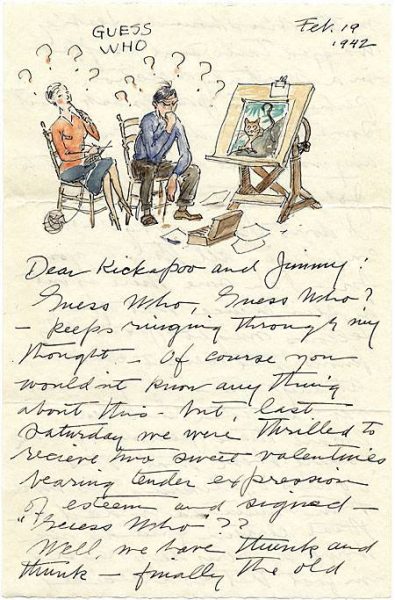 GUESS
WHO
Feb. 19
1942
Dear Kickapoo and Jimmy:
Guess Who, Guess Who?
– keeps ringing through my
thought – Of course you
wouldn't know any thing
about this – but, last
Saturday we were thrilled to
recieve two sweet valentines
bearing tender expression
of esteem and signed –
"Guess Who"??
Well, we have thunk and
thunk – finally the old